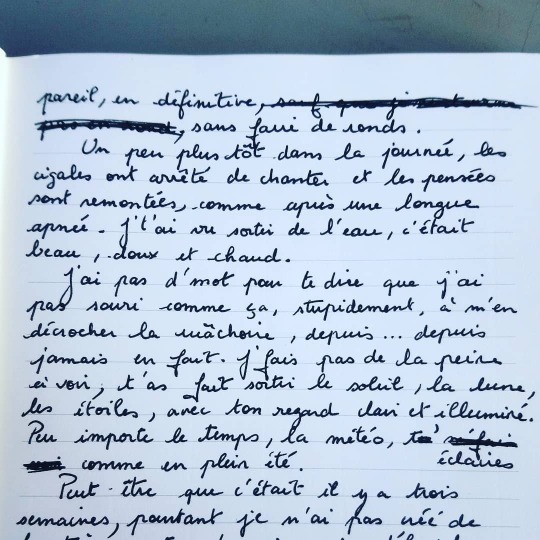 pareil, en définitive, sauf que je
sans faire de ronds.
Un peu plus tôt dans la journée, les
cigales ont arrêté de chanter et les pensées
sont remontées, comme après une longue
apnée. J't'ai vu sortir de l'eau, c'était
beau, doux et chaud.
J'ai pas d'mot pour te dire que j'ai
pas souri comme ça, stupidement, à m'en
décrocher la mâchoire, depuis... depuis
jamais en fait. J'fais pas de la peine
à voir, t'as fait sortir le soleil, la lune,
les étoiles, avec ton regard clair et illuminé.
Peu importe le temps, la météo, tu
éclaires
comme en plein été.
Peut-être que c'était il y a trois
semaines, pourtant je n'ai pas créé de